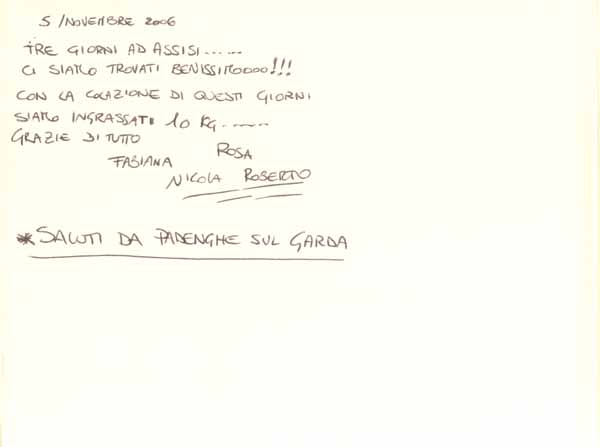 5/NOVEMBRE 2006
TRE GIORNI AD ASSISI......
CI SIAMO TROVATI BENISSIMOOOO!!!
CON LA COLAZIONE DI QUESTI GIORNI
SIAMO INGRASSATI 10 KG......
GRAZIE DI TUTTO
ROSA
FABIANA
NICOLA ROBERTO
*SALUTI DA PADENGHE SUL GARDA